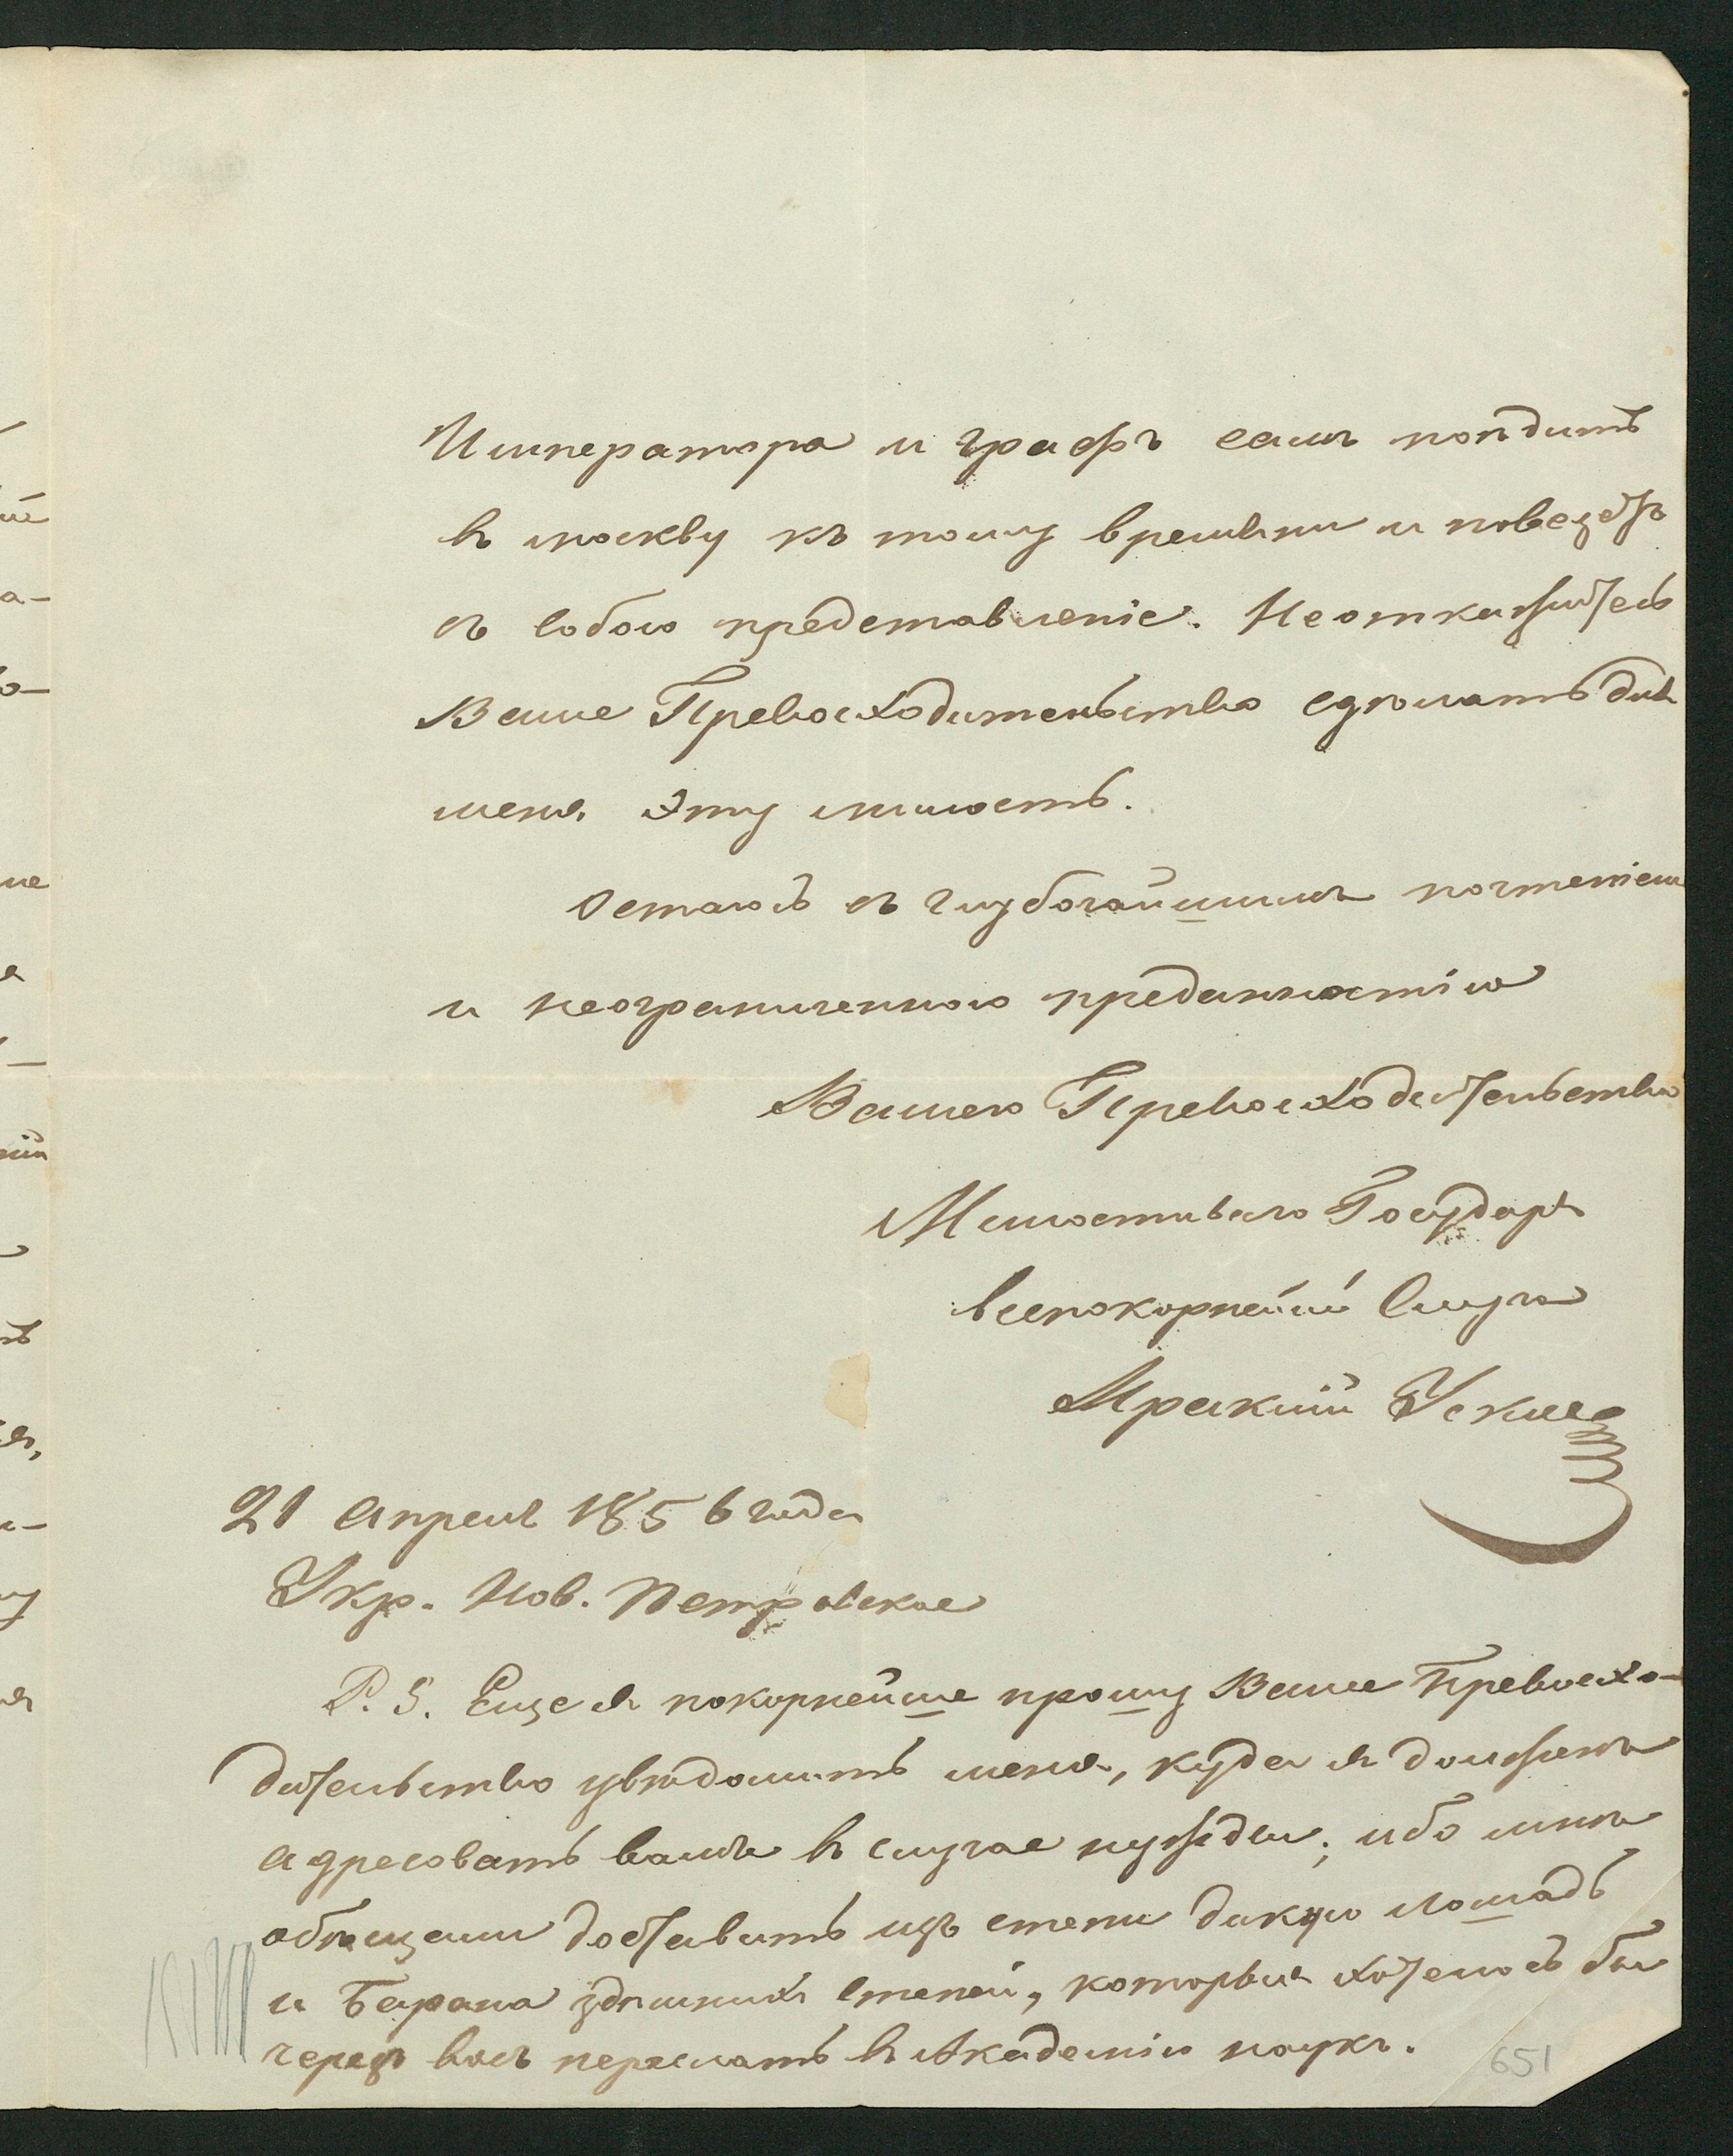 Императора и графъ самъ поѣдитъ
въ москву къ тому времѣни и повезетъ
съ собою представленіе. Не откажитесь
Ваше Превосходительство сдѣлать для
меня эту милость.
Остаюсь съ глубочайшимъ почтеніемъ
и неограниченною преданностію
Вашего Превосходительства
Милостиваго Государя
всепокорнейший Слуга
Ираклий Усков
21 Апреля 1856 года
Укр. Нов. Петровское
P. S. Еще я покорнейше прошу Ваше Превосхо-
дительство увѣдомить меня, куда я долженъ
адресовать вамъ въ случае нужды; ибо мнѣ
обѣщали доставить изъ степи дикую лошадь
и Барана здѣшнихъ степей, которыя хотелось бы
черезъ васъ переслать въ Академію наукъ.
651